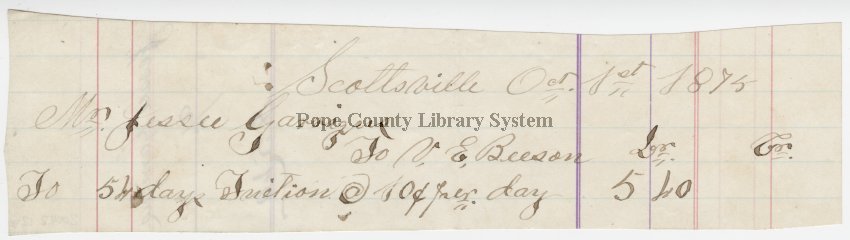 Scottsville Oct. 1st 1875
Mr. Jessee
Pope County Library System
To V. E. Beeson Dr. Cr.
To 54 days Tuction @ 10¢ per. day 5 40